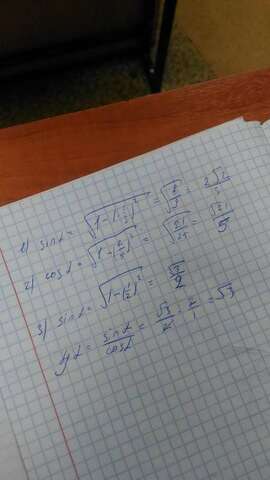 1) sinα = √(1-(1/3)²) = √(8/9) = 2√2/3
2) cosα = √(1-(2/5)²) = √(21/25) = √21/5
3) sinα = √(1-(1/2)²) = √3/2
tgα = sinα/cosα = √3/2 · 2/1 = √3